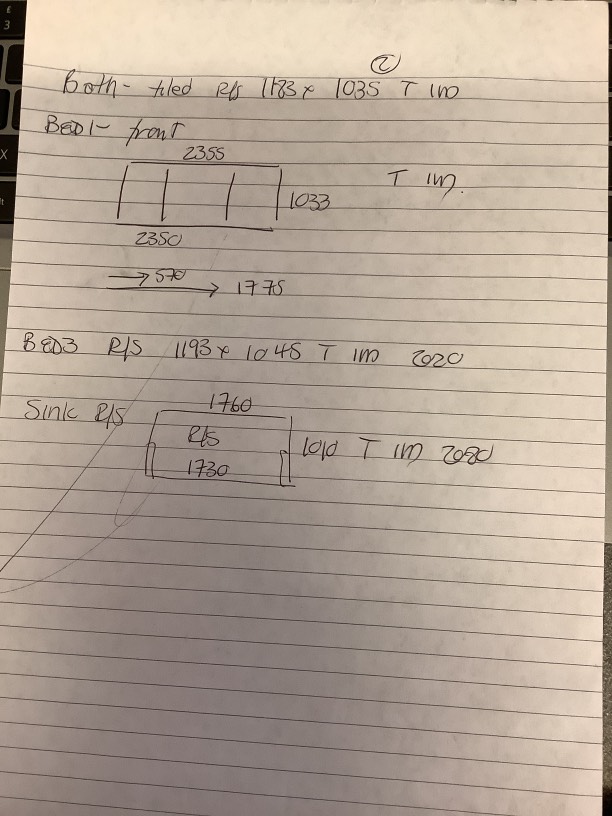 ②
Both - tiled R/S 1183 x 1035 T 1m
BED1 - front
2355
T 1m.
1033
2350
→ 570
→ 1775
BED3 R/S 1193 x 1045 T 1m 2020
Sink R/S
1760
R/S
1010 T 1m 2020
1730